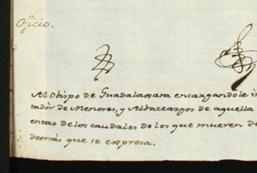 Oficio.
Al Obispo de Guadalaxara encargandole
tador de Menores, y Albaceazgos de aquella
entas de los caudales de los que mueren
demás que se expresa.